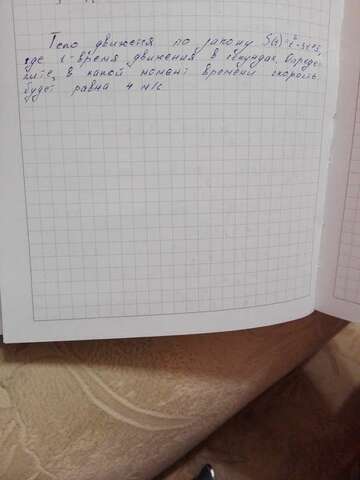 Тело движется по закону S(t)=t²-3t+3,
где t-время движения в секундах. Опреде-
лите, в какой момент времени скорость
будет равна 4 м/с